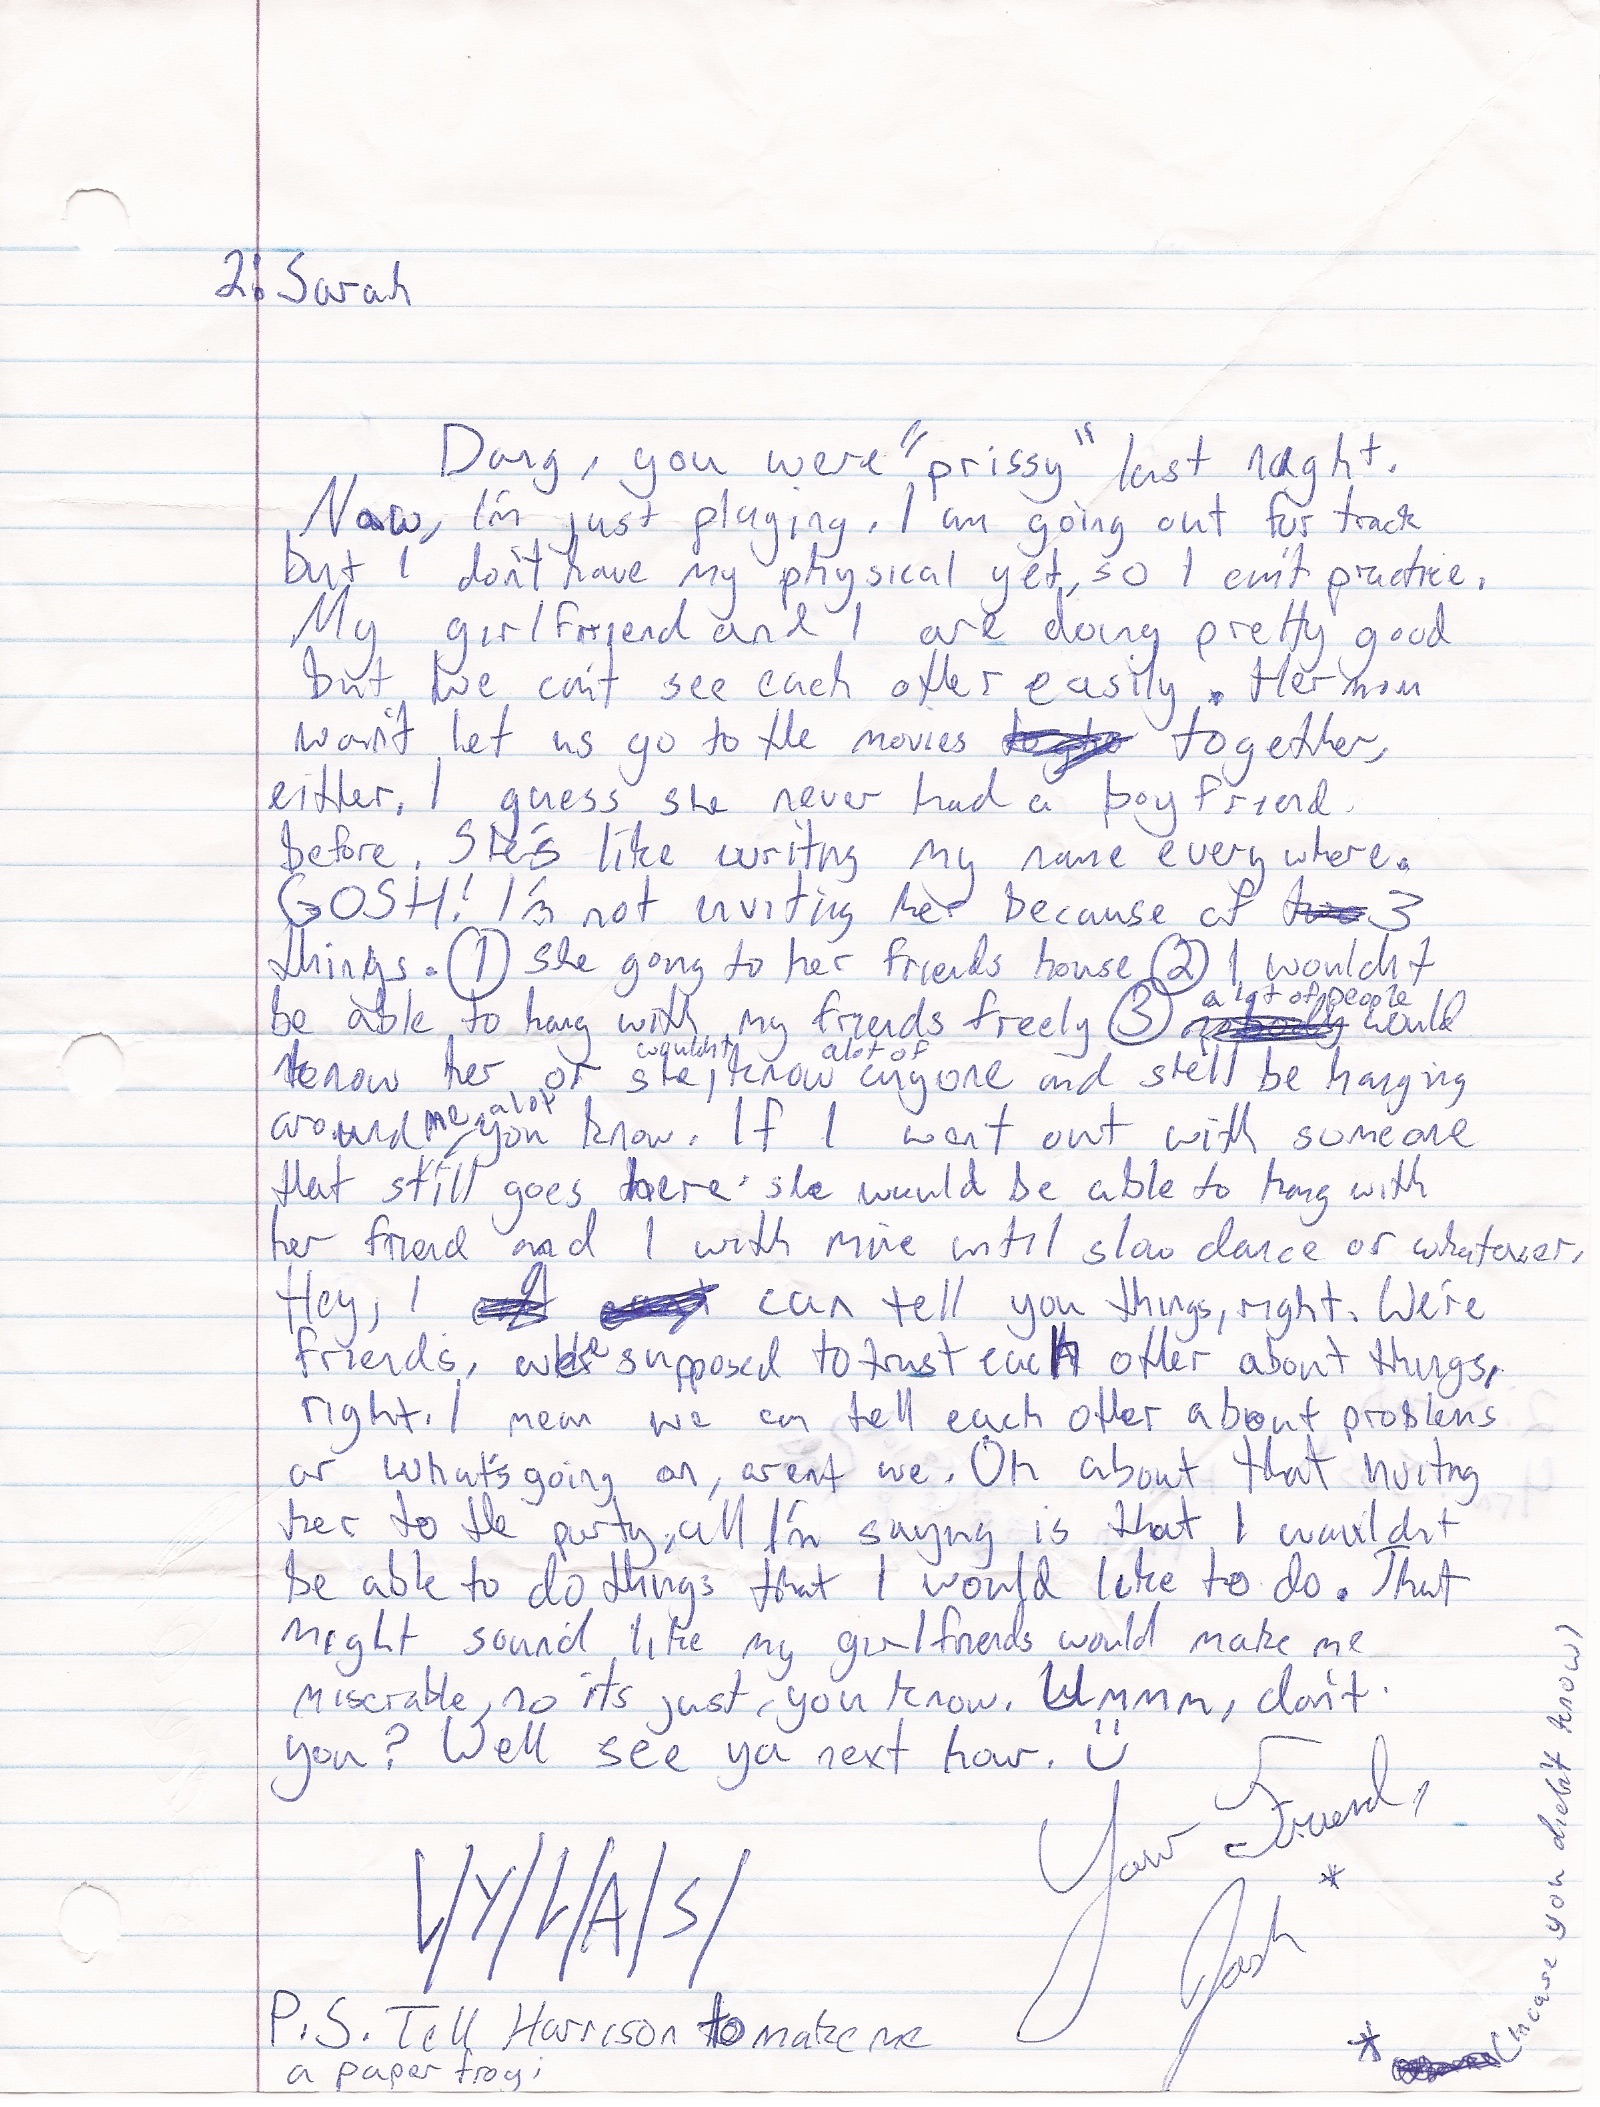 2: Sarah
Dang, you were "prissy" last night.
Naw, I'm just playing. I am going out for track
but I don't have my physical yet, so I can't practice.
My girlfriend and I are doing pretty good
but we can't see each other easily. Her mom
won't let us go to the movies together,
either. I guess she never had a boyfriend
before. She's like writing my name everywhere.
GOSH! I'm not inviting her because of 3
things. ① she going to her friends house ② I wouldn't
be able to hang with my friends freely ③ a lot of people would
know her or she wouldn't know alot of anyone and still be hanging
around me alot, you know. If I went out with someone
that still goes here she would be able to hang with
her friend and I with mine until slow dance or whatever.
Hey, I can tell you things, right. We're
friends, we're supposed to trust each other about things,
right. I mean we can tell each other about problems
or what's going on, arent we. Oh about that inviting
her to the party, all I'm saying is that I wouldn't
be able to do things that I would like to do. That
might sound like my girlfriends would make me
miserable, no it's just, you know. Ummm, don't
you? Well see ya next hour. Ü
Your Friend,
Josh *
L/Y/L/A/S/
P.S. Tell Harrison to make me
a paper frog;
* (Incase you didn't know)